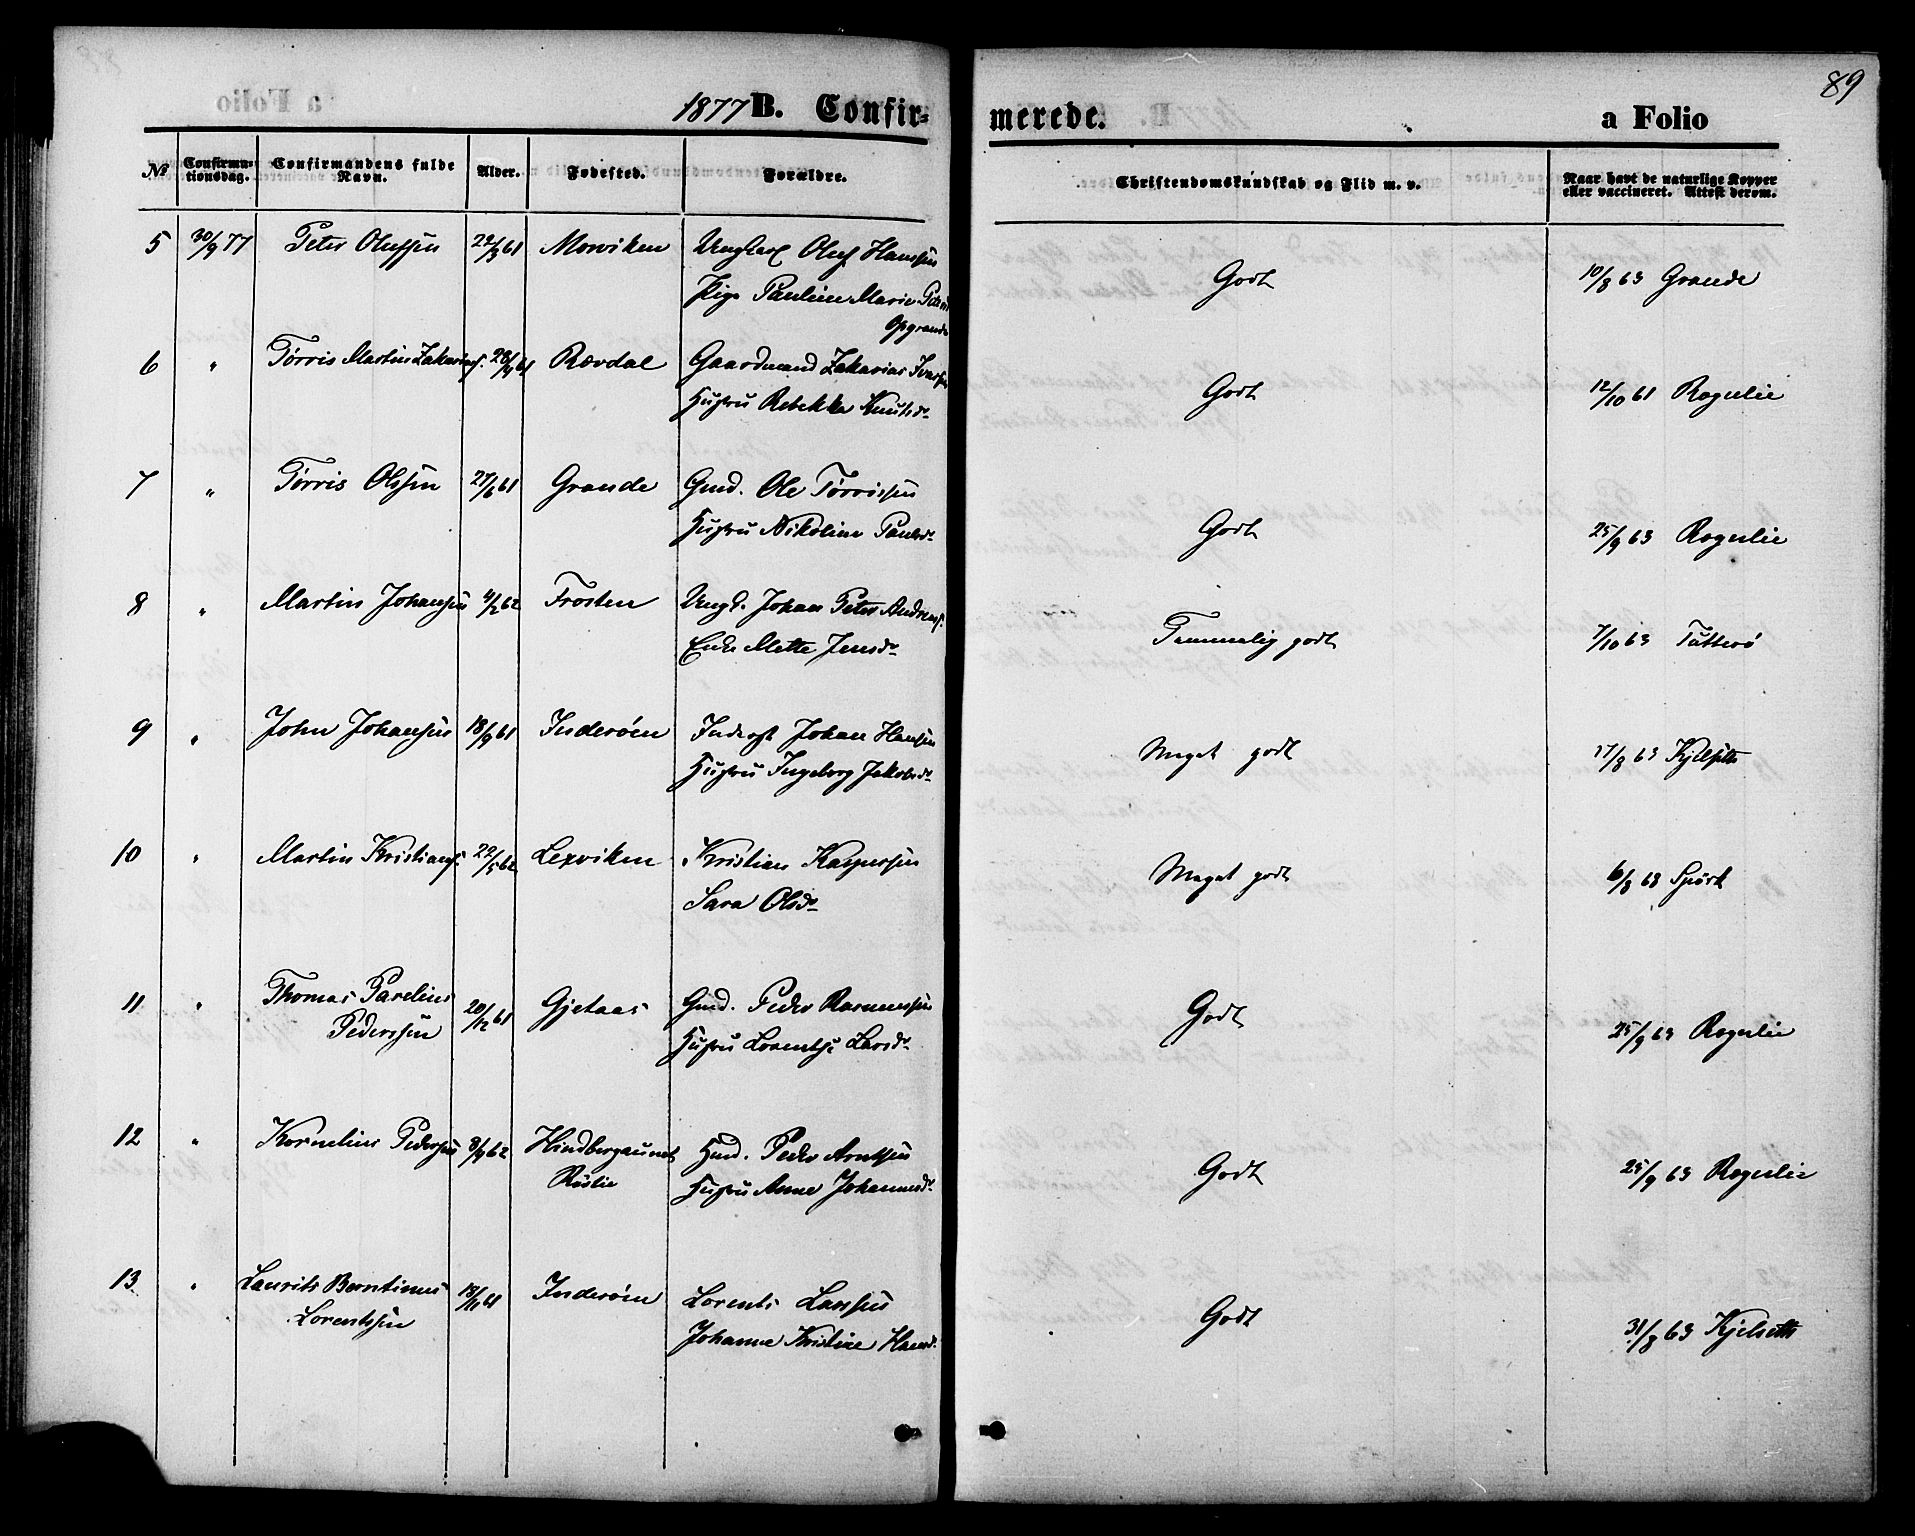 89
1877 B. Confirmerede. a Folio
№ Confirmationsdag. Confirmandens fulde Navn. Alder. Fødested. Forældre. Christendomskundskab og Flid m. v. Naar havt de naturlige Kopper eller vaccineret. Attest derom.
5 30/9 77 Peter Olufsen 61 Morviken Ungkarl Oluf Hansen
Pige Pauline Marie
Opgrande
Godt 10/8 63 Grande
6 " Tørris Martin Zakarias. 61 Rævdal Gaardmand Zakarias Ivarsen
Hustru Rebekka Knutsdr
Godt 12/10 61 Rogerlie
7 " Tørris Olsen 27/6 61 Grande Gmd. Ole Tørrissen
Hustru Nikoline Paulsdr
Godt 25/9 63 Rogerlie
8 " Martin Johansen 4/2 62 Frosten Ungk. Johan Peter Andreas.
Enke Mette Jensdr
Temmelig godt 7/10 63 Tutterø
9 " John Johansen 18/9 61 Inderøen Inderst Johan Hansen
Hustru Ingeborg Jakobsdr
Meget godt 17/8 63 Kjelseth
10 " Martin Kristians. 22/5 62 Lexviken Kristian Kaspersen
Sara Olsdr
Meget godt 6/8 63 Spørk
11 " Thomas Parelius
Pederssen 20/12 61 Gjetaas Gmd. Peder Rasmussen
Hustru Lorentse Larsdr
Godt 25/9 63 Rogerlie
12 " Kornelius Pedersen 8/4 62 Hindbergaunet
Røslie Hmd. Peder Arntsen
Hustru Anne Johannesdr
Godt 25/9 63 Rogerlie
13 " Laurits Berntinus
Lorentssen 18/11 61 Inderøen Lorents Larssen
Johanna Kristine Hansd.
Godt 31/8 63 Kjelseth